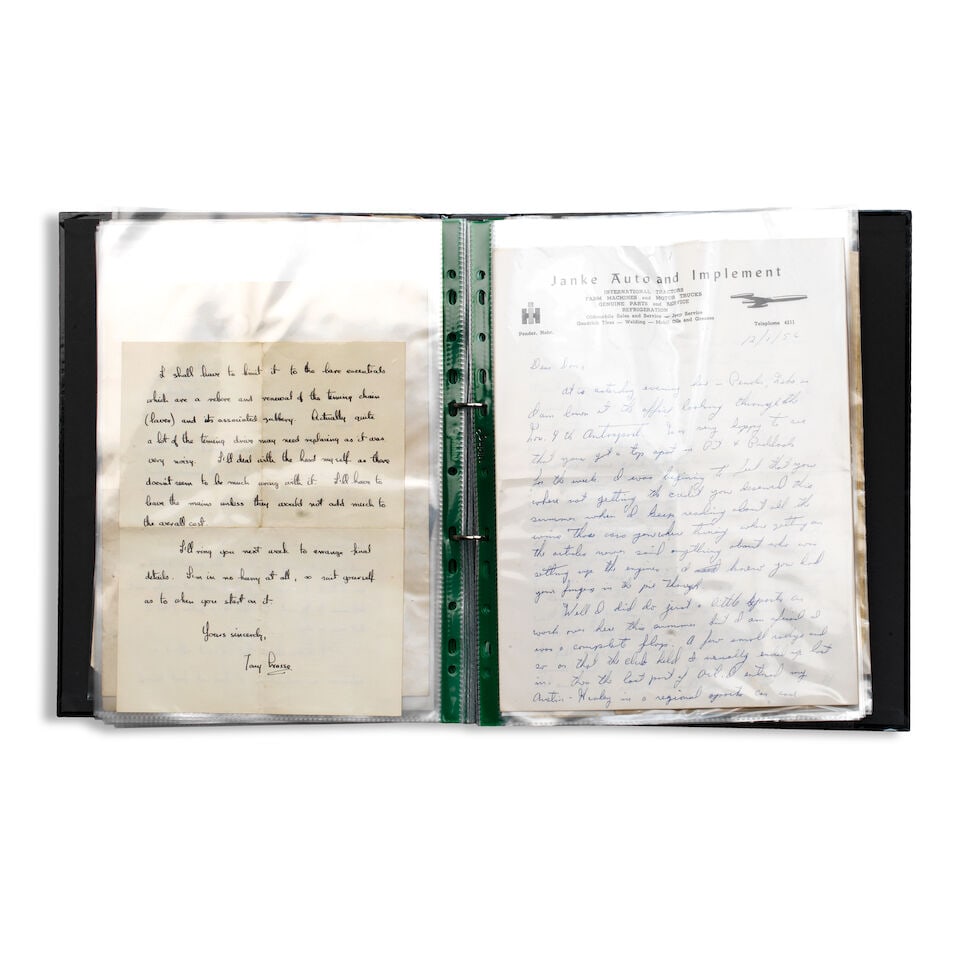 I shall have to limit it to the bare essentials
which are a rebore and renewal of the timing chain
(laver) and its associated gubbery. Actually quite
a lot of the timing drive may need replacing as it was
very noisy. I'll deal with the head myself as there
doesn't seem to be much wrong with it. I'll have to
leave the mains unless they would not add much to
the overall cost.
I'll ring you next week to arrange final
details. I'm in no hurry at all, so suit yourself
as to when you start on it.
Yours sincerely,
Tony
Janke Auto and Implement
INTERNATIONAL TRACTORS
FARM MACHINES and MOTOR TRUCKS
GENUINE PARTS and SERVICE
REFRIGERATION
Oldsmobile Sales and Service — Jeep Service
Goodrich Tires — Welding — Mobil Oils and Greases
Pender, Nebr.
Telephone 4211
Dear Don,
It is Saturday evening here in Pender, Nebr.
I am down at the office looking through the
Nov. 9th Autosport. I'm very happy to see
that you got a top spot in
for the week. I was beginning to feel that you
where not getting the credit you deserved this
summer when I keep reading about all the
wins those cars you where
the articles never said anything about who was
setting up the engines. I knew you had
your fingers in the pie though.
Well I did do just a little sports car
work over here this summer but I am afraid I
was a complete flop. A few small rallys and
so on that the club held I usually
in. the last part of I entered my
Austin-Healey in a regional sports car